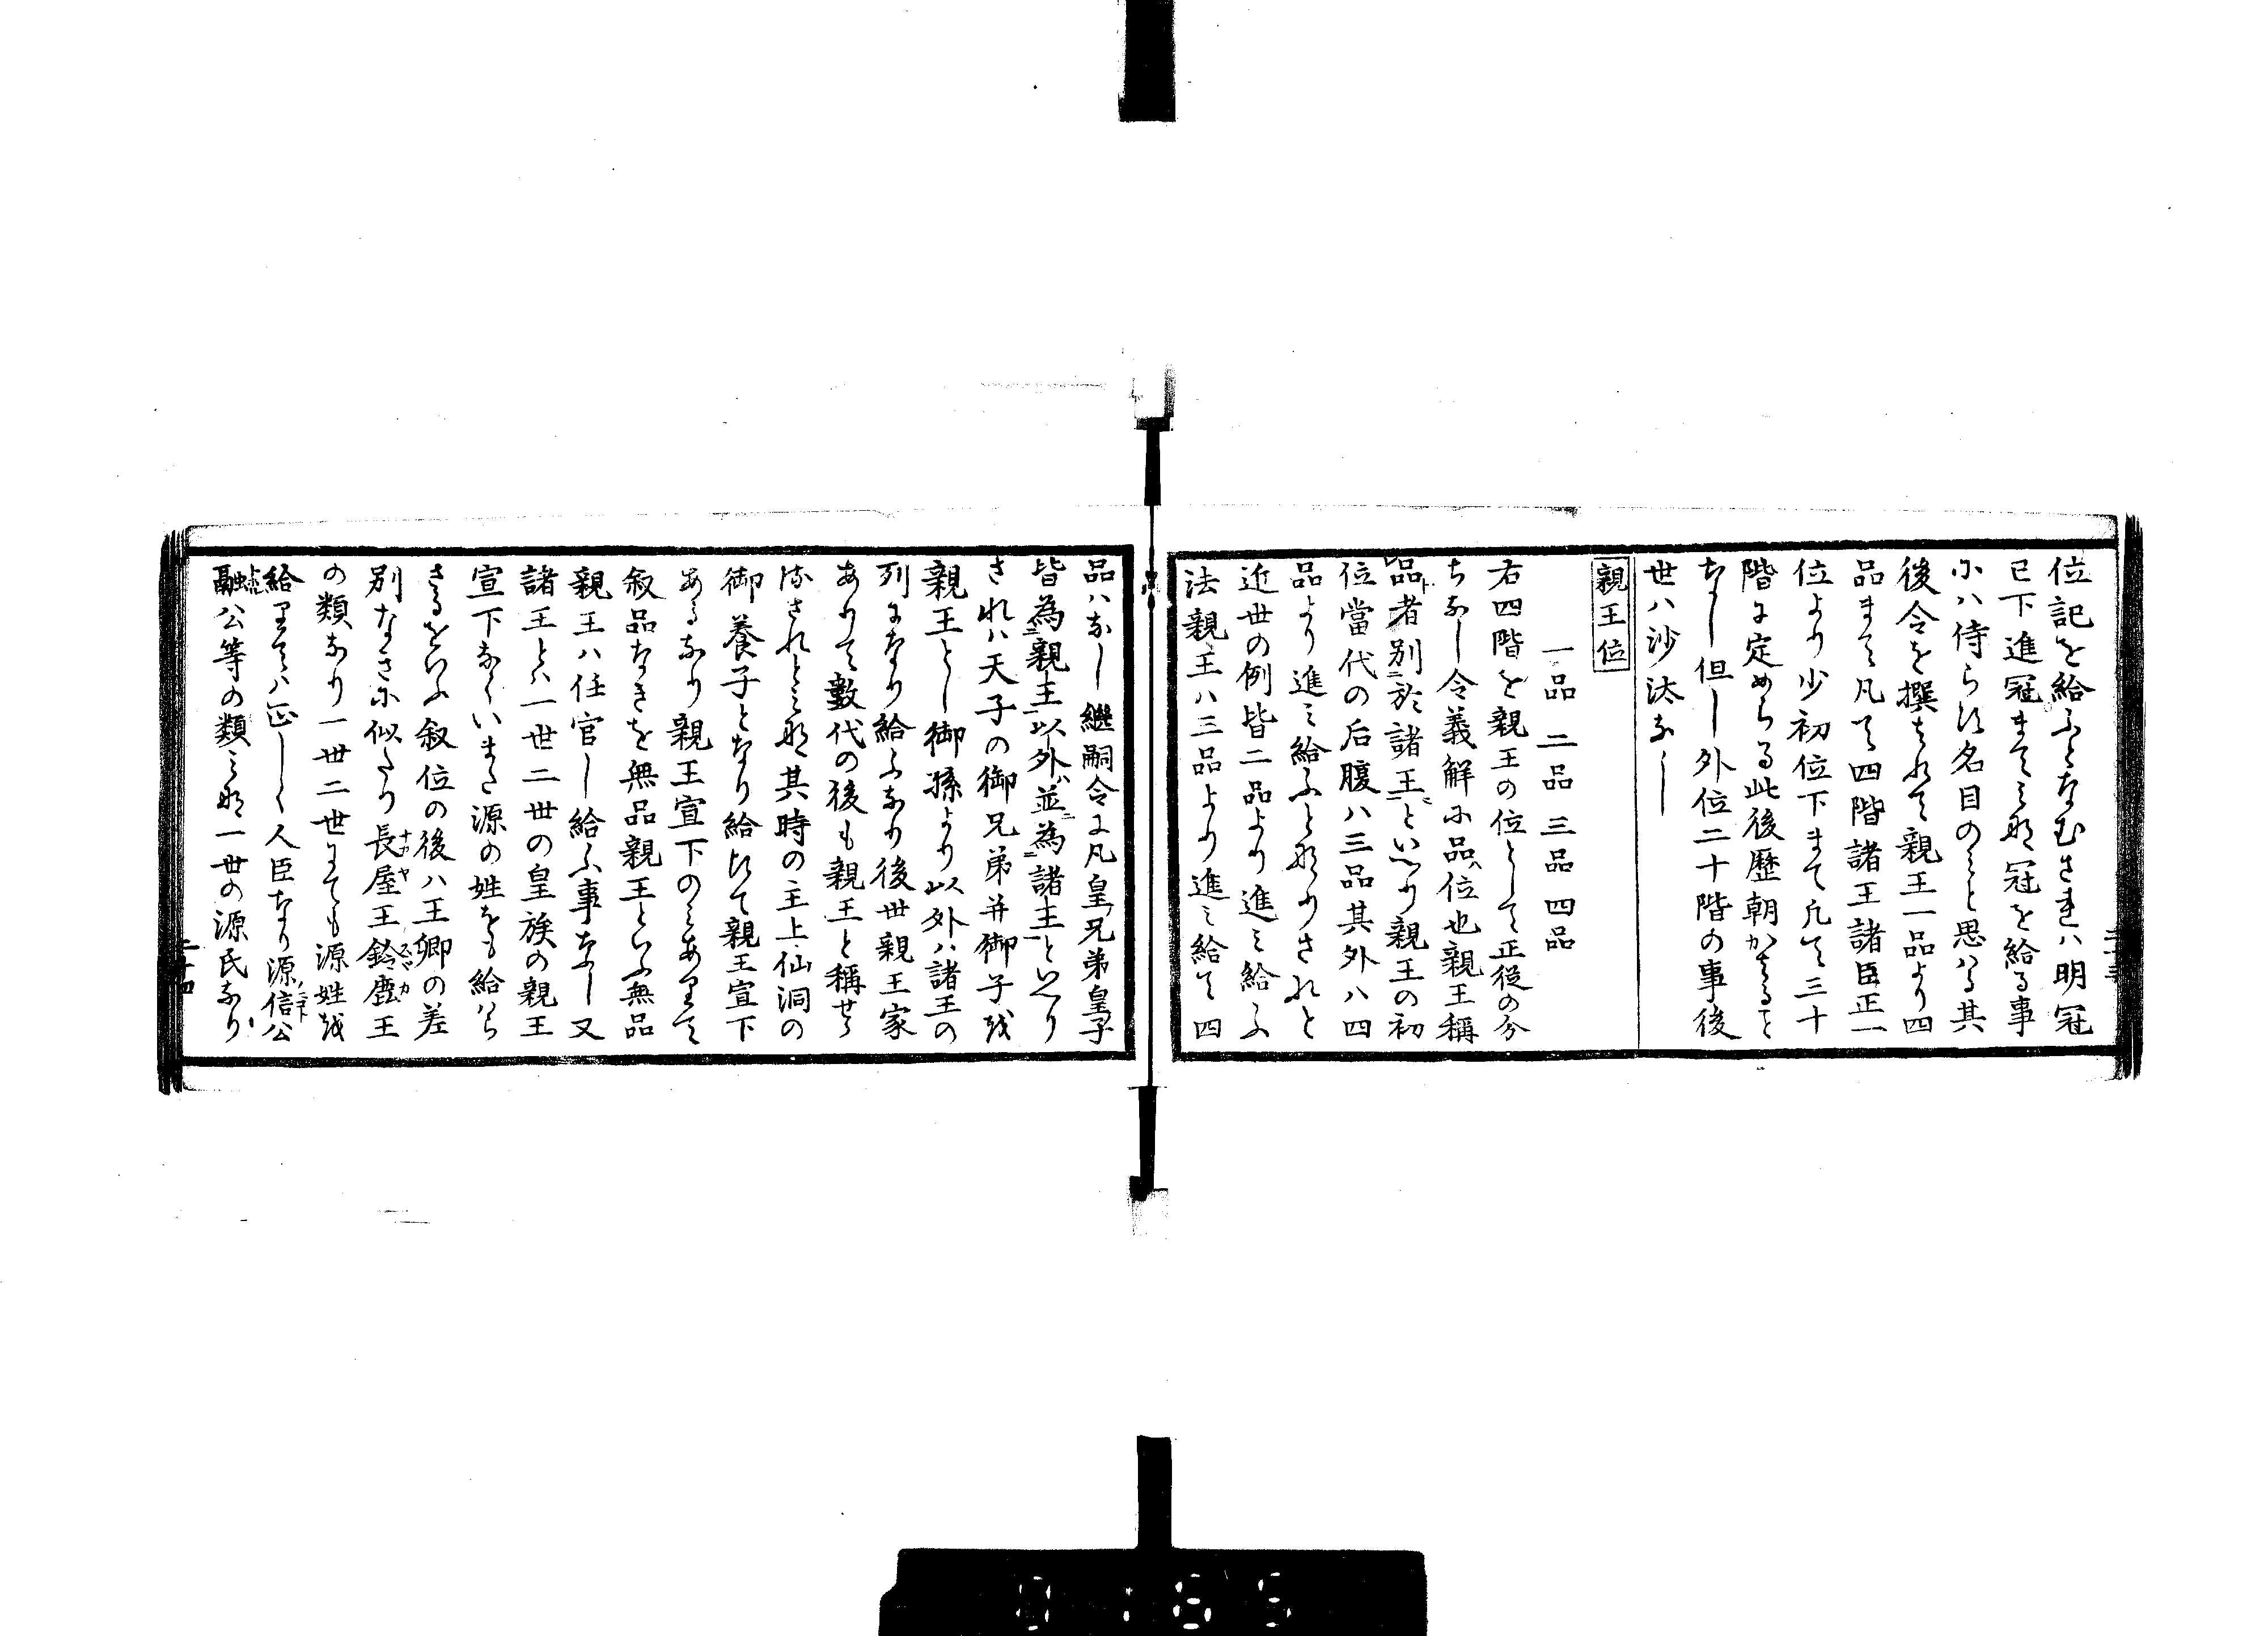 位記を給ふとなむされハ明冠
已下進冠まてみな冠を給る事
にハ侍らす名目のミと思はる其
後令を撰はれて親王一品より四
品まて凡て四階諸王諸臣正一
位より少初位下まて凡て三十
階に定めらる此後歴朝かはること
なし但し外位二十階の事後
世ハ沙汰なし
親王位
一品 二品 三品 四品
右四階を親王の位として正従の分
ちなし令義解に品ハ位也親王称
品者別於諸王といへり親王の初
位當代の后腹ハ三品其外ハ四
品より進み給ふとなりされと
近世の例皆二品より進み給ふ
法親王ハ三品より進み給て四
品ハなし継嗣令に凡皇兄弟皇子
皆為親王以外ハ並為諸王といへり
されハ天子の御兄弟并御子を
親王とし御孫より以外ハ諸王の
列になり給ふなり後世親王家
ありて數代の後も親王と稱せら
るされとみな其時の主上仙洞の
御養子となり給ひて親王宣下
あるなり親王宣下のみありて
叙品なきを無品親王といふ無品
親王ハ任官し給ふ事なし又
諸王とハ一世二世の皇族の親王
宣下なくいまた源の姓をも給はら
さるをいふ叙位の後ハ王卿の差
別なきに似たり長屋王鈴鹿王
の類なり一世二世にても源姓を
給りてハ正しく人臣なり源信公
融公等の類みな一世の源氏なり
二十四